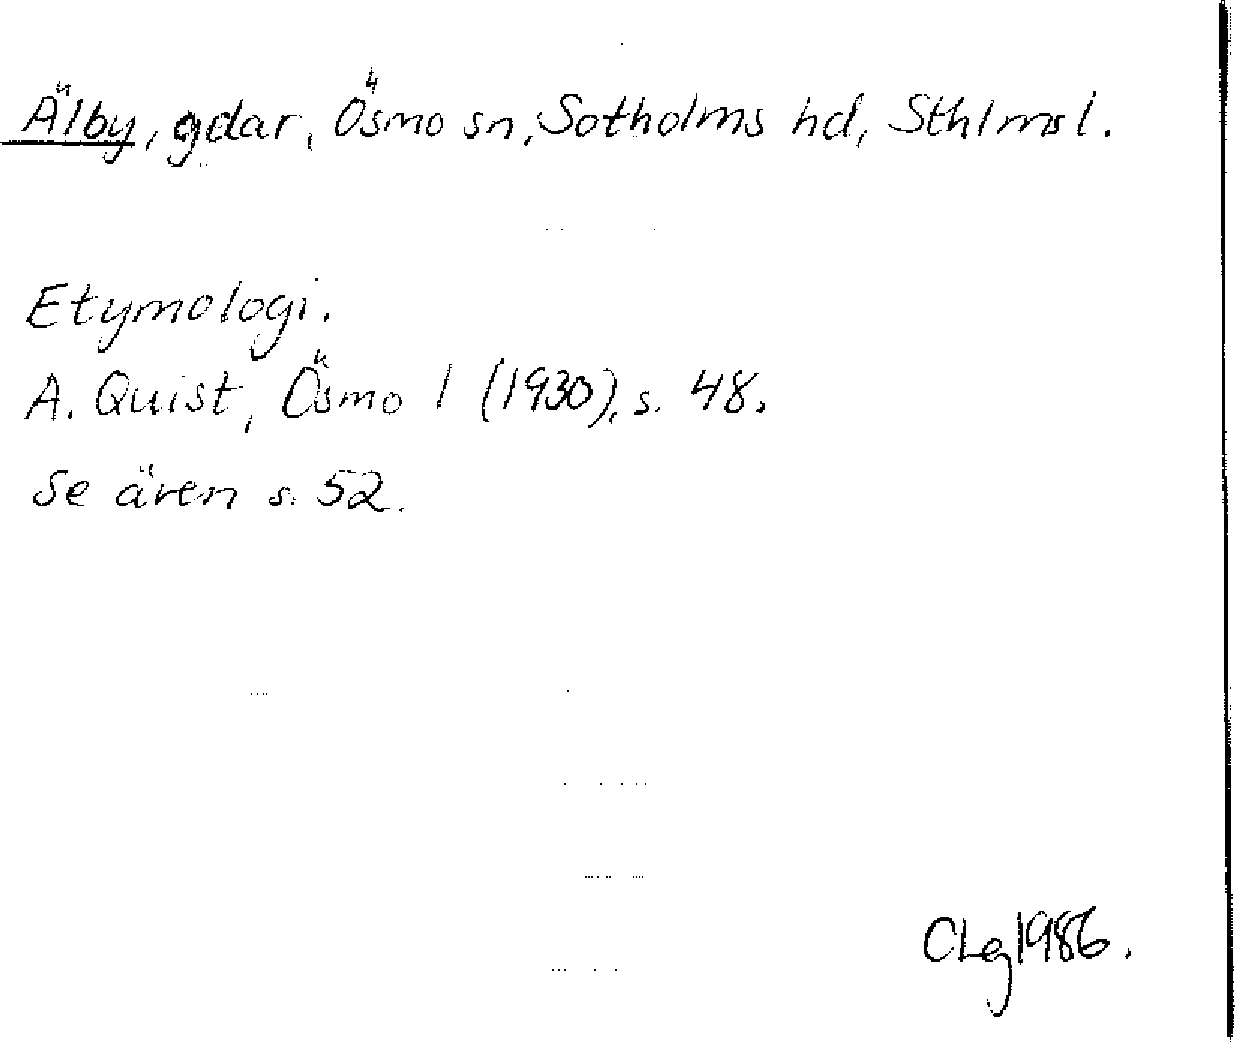 Älby, gdar, Ösmo sn, Sotholms hd, Sthlms l.
Etymologi.
A. Quist, Ösmo 1 (1930), s. 48.
Se även s. 52.
CLg 1986.